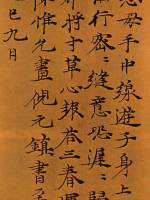 慈母手中線遊子身上
行密〻縫意恐遲〻
將寸草心報答三春暉
陳惟允畫倪元鎮書
巳九月